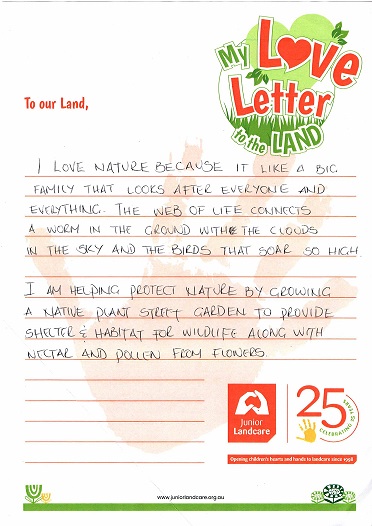 My Love
Letter
to the LAND
To our Land,
I LOVE NATURE BECAUSE IT LIKE A BIG
FAMILY THAT LOOKS AFTER EVERYONE AND
EVERYTHING. THE WEB OF LIFE CONNECTS
A WORM IN THE GROUND WITH THE CLOUDS
IN THE SKY AND THE BIRDS THAT SOAR SO HIGH.
I AM HELPING PROTECT NATURE BY GROWING
A NATIVE PLANT STREET GARDEN TO PROVIDE
SHELTER & HABITAT FOR WILDLIFE ALONG WITH
NECTAR AND POLLEN FROM FLOWERS.
Junior
Landcare
25
CELEBRATING 25 YEARS
Opening children's hearts and hands to landcare since 1998
www.juniorlandcare.org.au